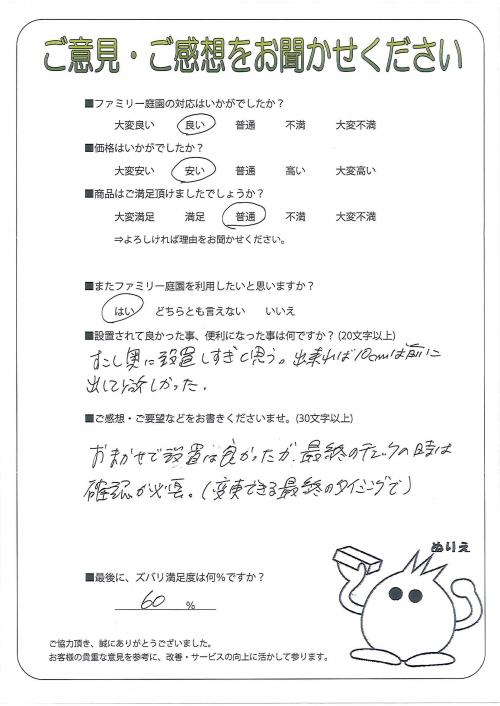 ご意見・ご感想をお聞かせください
■ファミリー庭園の対応はいかがでしたか？
大変良い 良い 普通 不満 大変不満
■価格はいかがでしたか？
大変安い 安い 普通 高い 大変高い
■商品はご満足頂けましたでしょうか？
大変満足 満足 普通 不満 大変不満
⇒よろしければ理由をお聞かせください。
■またファミリー庭園を利用したいと思いますか？
はい どちらとも言えない いいえ
■設置されて良かった事、便利になった事は何ですか？(20文字以上)
すこし奥に設置しすぎと思う。出来れば10cmは前に
出して欲しかった.
■ご感想・ご要望などをお書きくださいませ。(30文字以上)
おまかせで設置は良かったが、最終のチェックの時は
確認が必要。(変更できる最終のタイミングで)
ぬりえ
■最後に、ズバリ満足度は何％ですか？
60 %
ご協力頂き、誠にありがとうございました。
お客様の貴重な意見を参考に、改善・サービスの向上に活かして参ります。